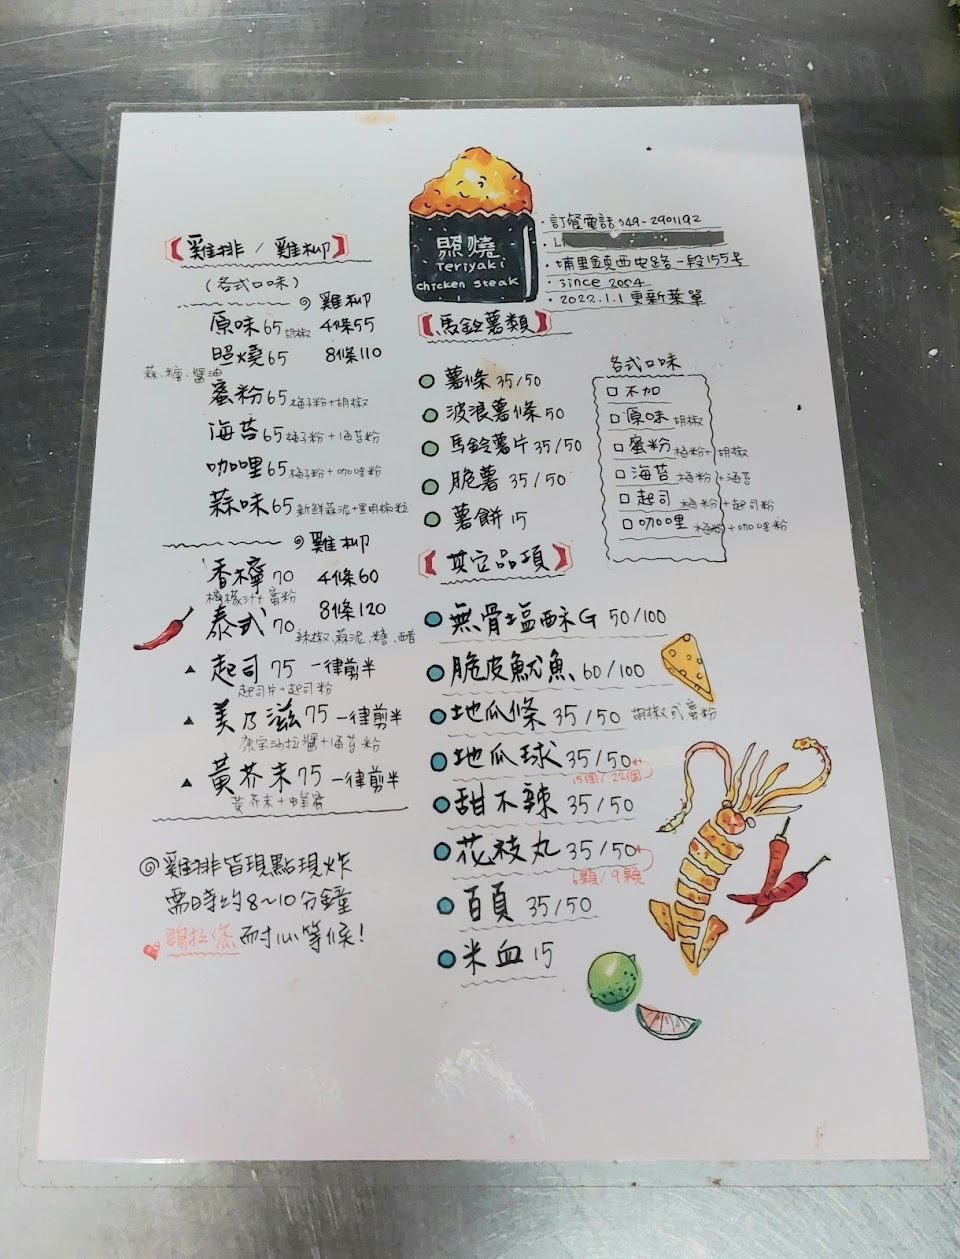 照燒
Teriyaki
chicken steak
・訂餐電話 049-2901192
・Li
・埔里鎮西屯路一段155号
・since 2004
・2022.1.1 更新菜單
【雞排 / 雞柳】
(各式口味)
雞柳
原味65 胡椒 4條55
照燒65 8條110
蒜、糖、醬油
蜜粉65 梅子粉+胡椒
海苔65 梅子粉+海苔粉
咖哩65 梅子粉+咖哩粉
蒜味65 新鮮蒜泥+黑胡椒粒
雞柳
香檸70 4條60
檸檬汁+蜜粉
8條120
泰式70 辣椒、蒜泥、糖、醋
▲ 起司75 一律剪半
起司片+起司粉
▲ 美乃滋75 一律剪半
康宝沙拉醬+海苔粉
▲ 黃芥末75 一律剪半
黃芥末+蜂蜜
◎雞排皆現點現炸
需時約8~10分鐘
謝拉您 耐心等候!
【馬鈴薯類】
薯條 35/50
波浪薯條 50
馬鈴薯片 35/50
脆薯 35/50
薯餅 15
各式口味
□ 不加
□ 原味 胡椒
□ 蜜粉 梅粉+胡椒
□ 海苔 梅粉+海苔
□ 起司 梅粉+起司粉
□ 咖哩 梅粉+咖哩粉
【其它品項】
無骨塩酥G 50/100
脆皮魷魚 60/100
地瓜條 35/50 胡椒或蜜粉
地瓜球 35/50
15個/22個
甜不辣 35/50
花枝丸 35/50
6顆/9顆
百頁 35/50
米血 15